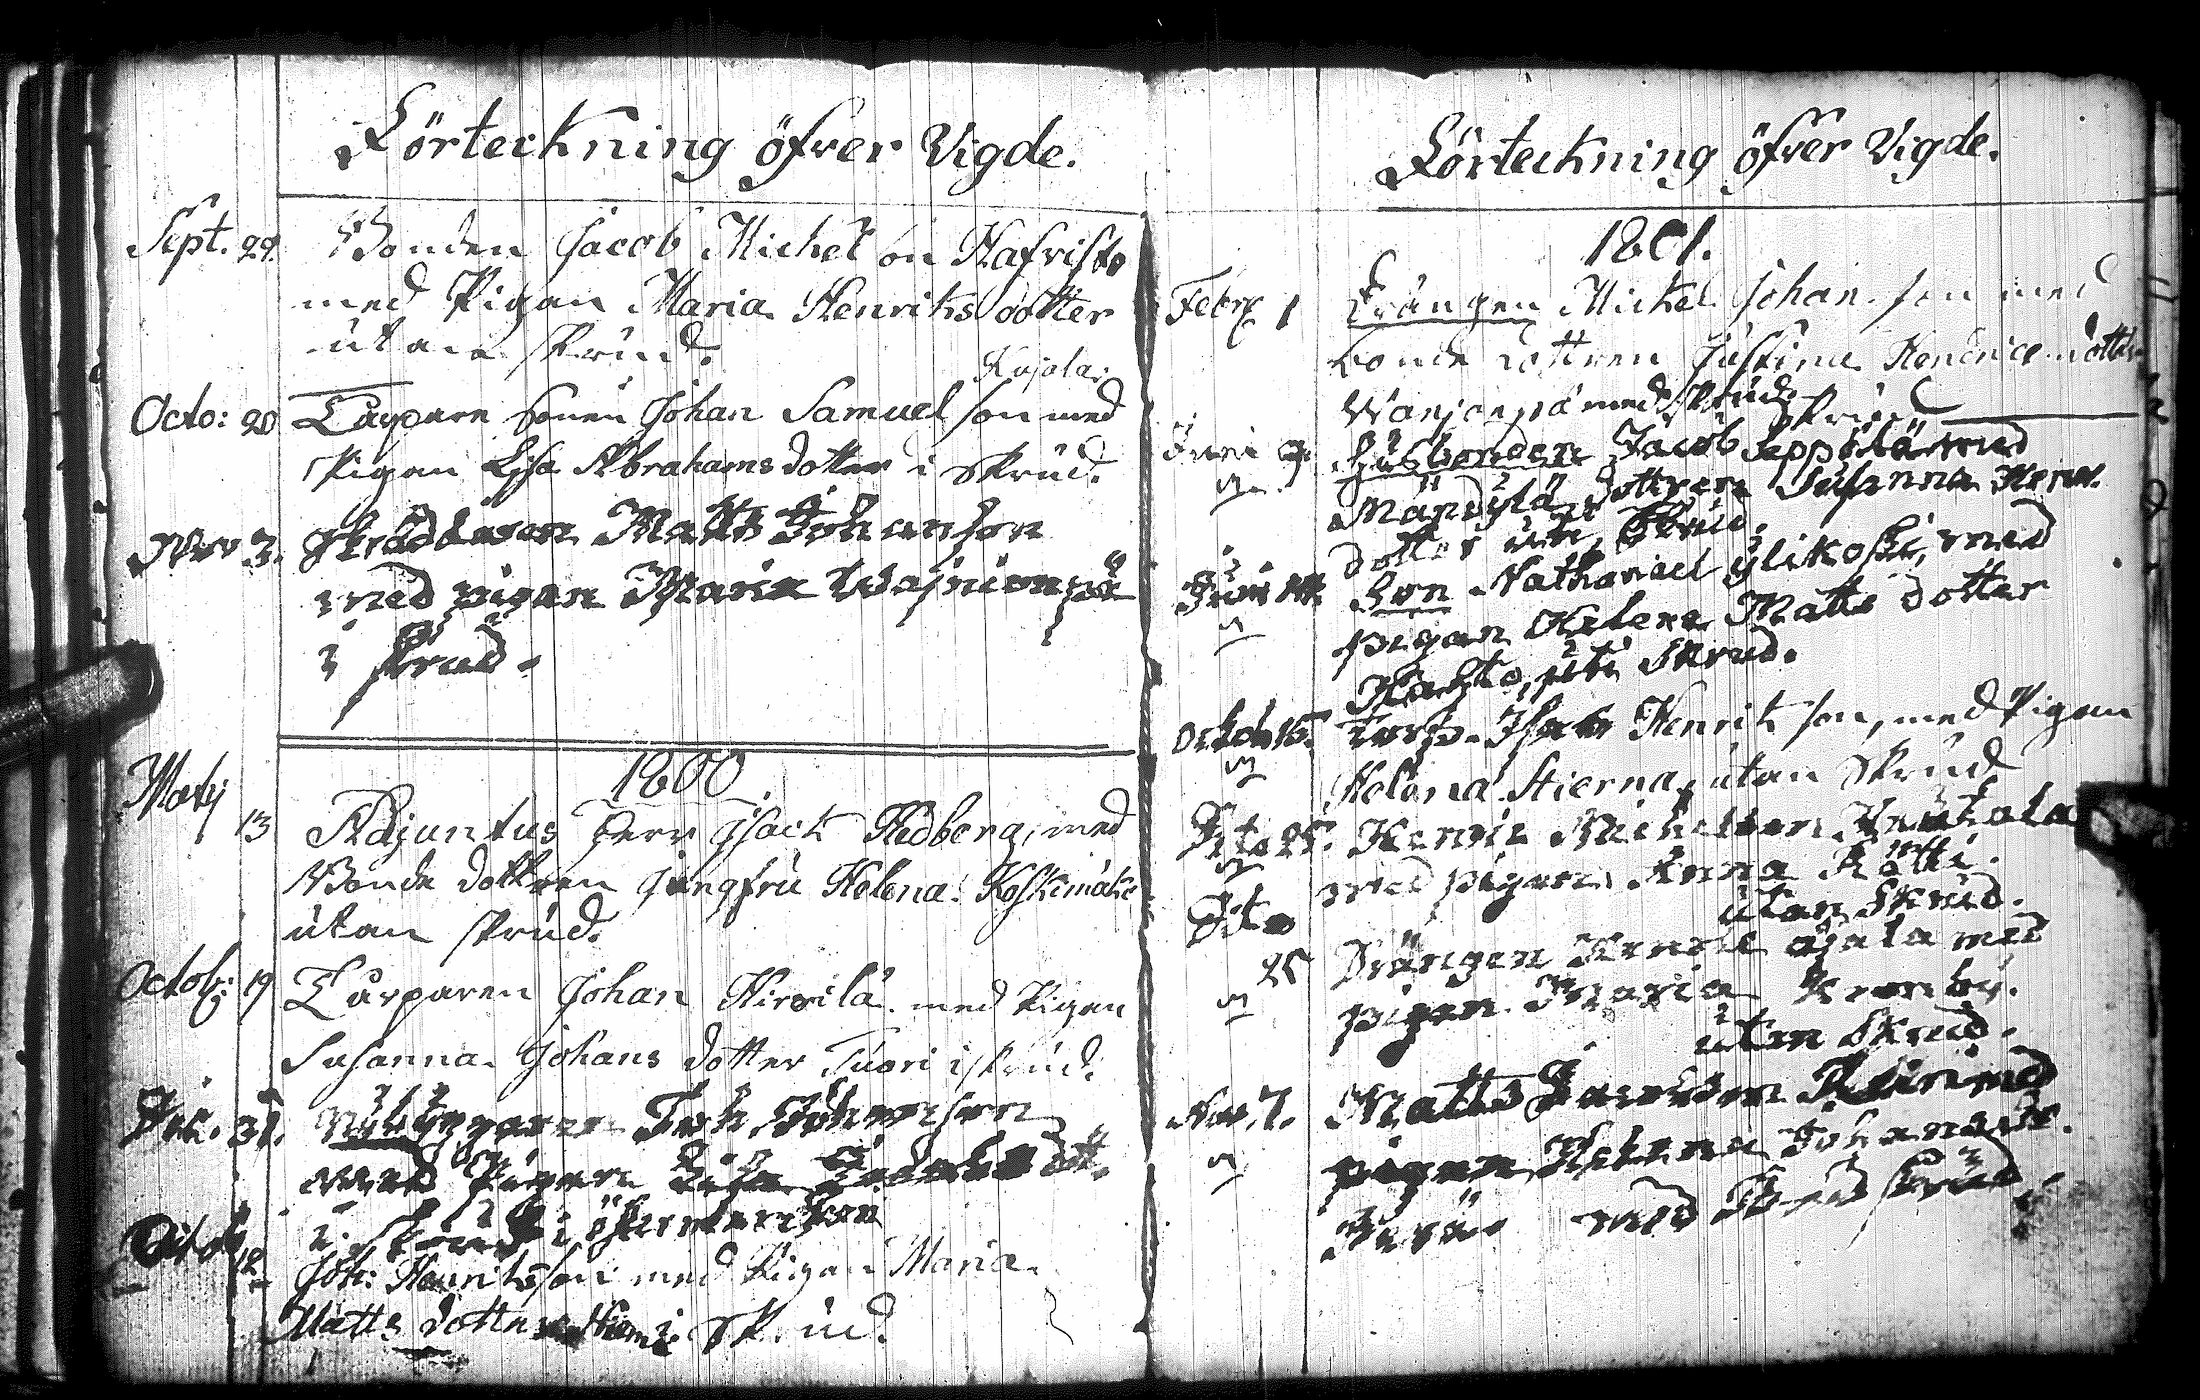 Förteckning öfver Vigde.
Sept. 29. Bonden Jacob Michel son Hafvisto
med Pigan Maria Henriks dotter
utan skrud.
Kujala.
Octo: 20 Torpare sonen Johan Samuel son med
Pigan Lisa Abrahams dotter i skrud.
Nov 3. Skräddaren Matts Johansson
med pigan Maria Wajnionpä
i skrud.
1800
Martij 13 Adjunctus Herr Isack Hedberg, med
Bonde dottren jungfru Helena Koskimäki
utan skrud.
Octob: 19 Torparen Johan Hirvilä med Pigan
Susanna Johans dotter Tuori i skrud.
Dec. 31. Nybyggaren Joh Johansson
med Pigan Lisa dott.
i skrud i östermarken
Octob 12 Joh: Henriksson med Pigan Maria
Matts dotter i skrud.
Förteckning öfver Vigde.
1801.
Febr 1 Drängen Mickel Johan son med
bonde dottren Justina Hendric dotter
Wanjonpä med skrud
skrud
Juni 9. Husbonden Jacob Seppälä med
Mändylä dottren Susanna Henr.
dotter utan skrud.
Juni Son Nathanael Ylikoski, med
pigan Helena Matts dotter
utan skrud.
Octob 15. Torp. Isak Henrik son, med Pigan
Helena Stierna, utan skrud
Dito 25. Henric Michelsson
med pigan Anna Kötti.
utan skrud.
Dito
25 Drängen Henric Ojala med
pigan Maria Kronby.
utan skrud.
Nov. 7. Matts Jacobson med
pigan Helena Johansdr.
med skrud